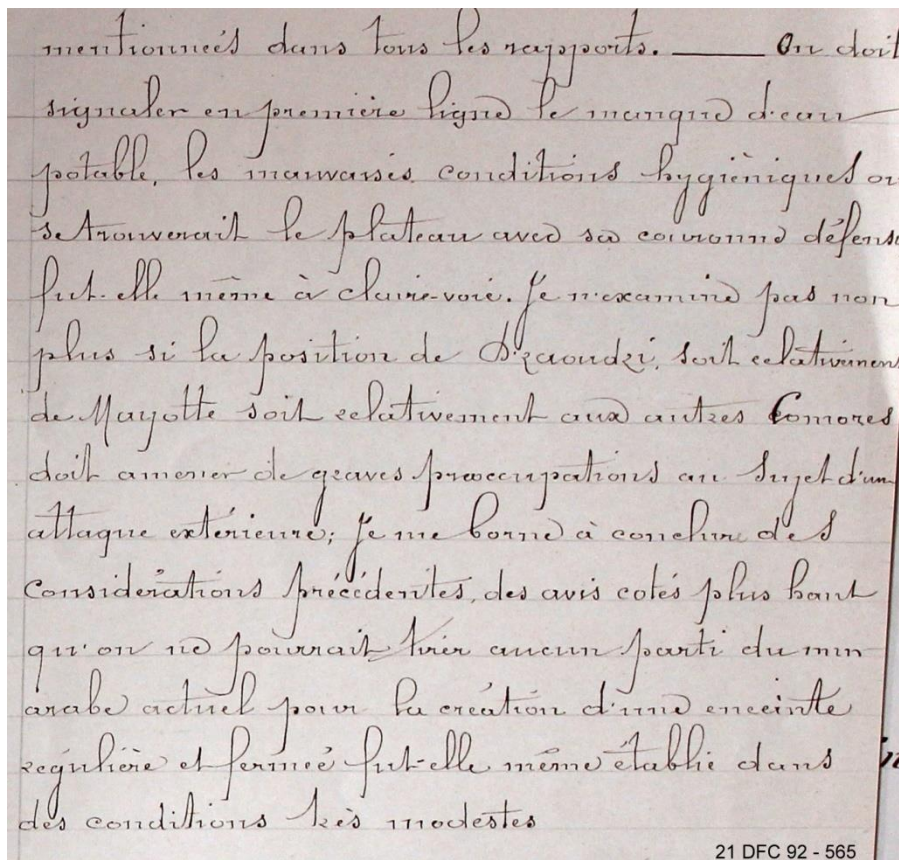 mentionnées dans tous les rapports. —— On doit
signaler en première ligne le manque d'eau
potable, les mauvaises conditions hygièniques ou
se trouverait le plateau avec sa couronne défens
fut-elle même à claire-voie. Je n'examine pas non
plus si la position de Dzaoudzi, soit relativement
de Mayotte soit relativement aux autres Comores
doit amener de graves préoccupations au sujet d'un
attaque extérieure; je me borne à conclure des
considérations précédentes, des avis cotés plus haut
qu'on ne pourrait tirer aucun parti du mur
arabe actuel pour la création d'une enceinte
régulière et fermée fut-elle même établie dans
des conditions très modestes
21 DFC 92 - 565